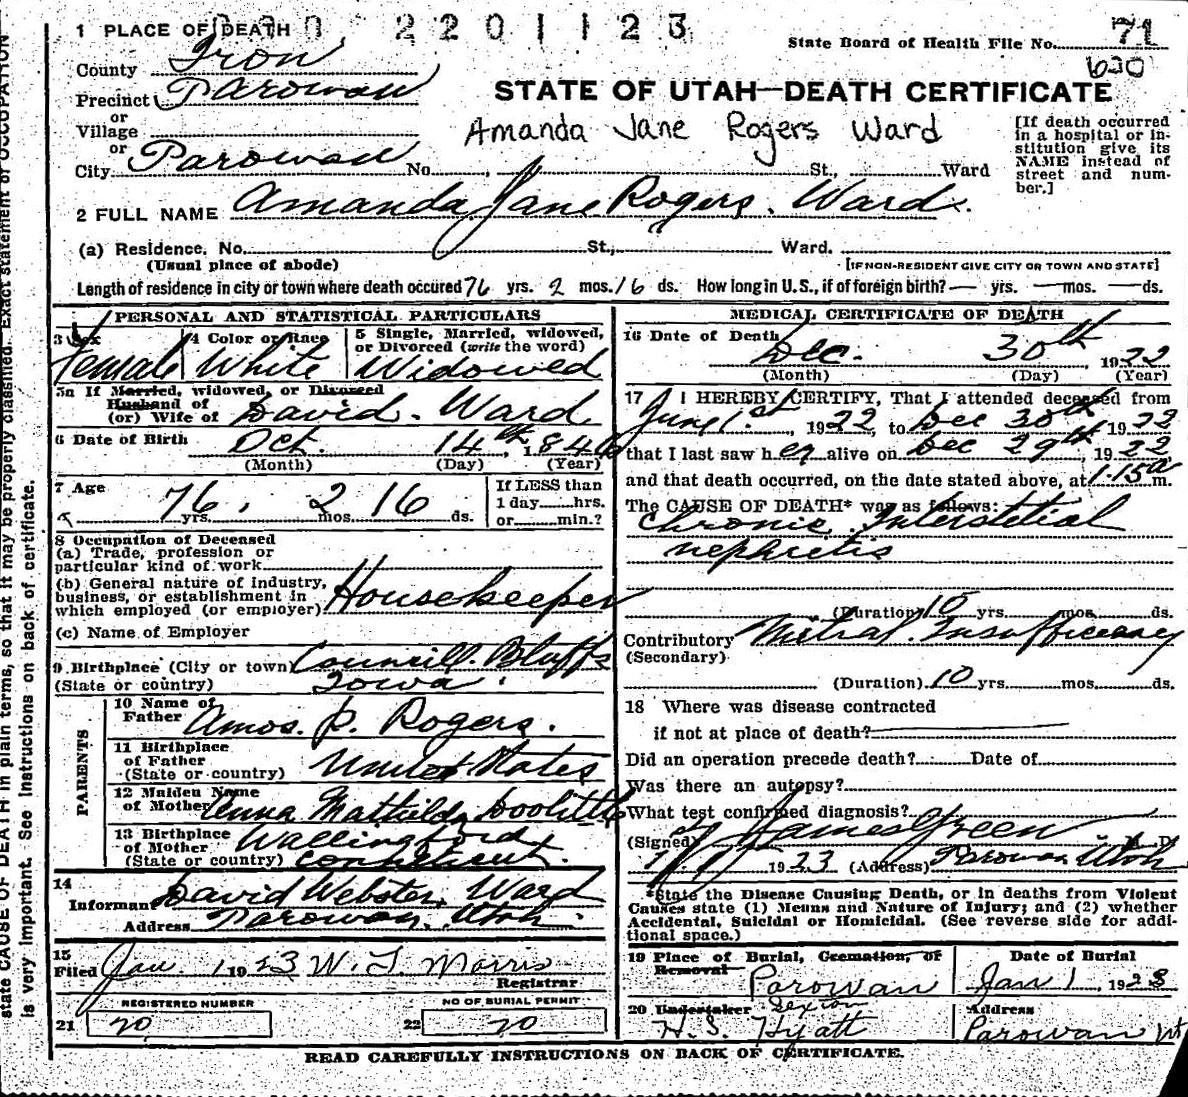 1 PLACE OF DEATH 2201123
State Board of Health File No. 71
County Iron
630
Precinct Parowan
STATE OF UTAH—DEATH CERTIFICATE
or
Village
Amanda Jane Rogers Ward
[If death occurred in a hospital or institution give its NAME instead of street and number.]
or
City Parowan No. St., Ward
2 FULL NAME Amanda Jane Rogers. Ward.
(a) Residence, No. St., Ward.
(Usual place of abode) [IF NON-RESIDENT GIVE CITY OR TOWN AND STATE]
Length of residence in city or town where death occured 76 yrs. 2 mos. 16 ds. How long in U.S., if of foreign birth? — yrs. — mos. — ds.
PERSONAL AND STATISTICAL PARTICULARS
3 Sex 4 Color or Race 5 Single, Married, widowed, or Divorced (write the word)
Female White Widowed
5a If Married, widowed, or Divorced
Husband of
(or) Wife of David. Ward
6 Date of Birth Oct. 14th, 1846
(Month) (Day) (Year)
7 Age If LESS than
76 yrs. 2 mos. 16 ds. 1 day hrs.
or min.?
8 Occupation of Deceased
(a) Trade, profession or
particular kind of work
(b) General nature of industry,
business, or establishment in
which employed (or employer) Housekeeper
(c) Name of Employer
9 Birthplace (City or town) Councill. Bluffs
(State or country) Iowa.
PARENTS
10 Name of
Father Amos. P. Rogers.
11 Birthplace
of Father
(State or country) United States
12 Maiden Name
of Mother Anna Mathilda Doolittle
13 Birthplace
of Mother Wallingford
(State or country) Conneticut.
14
Informant David Webster Ward
Address Parowan, Utah.
15
Filed Jan. 1 1923 W. L. Morris
Registrar
REGISTERED NUMBER NO OF BURIAL PERMIT
21 20 22 20
MEDICAL CERTIFICATE OF DEATH
16 Date of Death
Dec. 30th 1922
(Month) (Day) (Year)
17 I HEREBY CERTIFY, That I attended deceased from
June 1st, 1922, to Dec 30th 1922
that I last saw her alive on Dec 29th, 1922,
and that death occurred, on the date stated above, at 1.15a m.
The CAUSE OF DEATH* was as follows:
Chronic Interstetial
nephretis
(Duration) 10 yrs. mos. ds.
Contributory Mitral Insufficency
(Secondary)
(Duration) 10 yrs. mos. ds.
18 Where was disease contracted
if not at place of death?
Did an operation precede death? Date of
Was there an autopsy?
What test confirmed diagnosis?
(Signed) James Green M. D.
1/1 1923 (Address) Parowan Utah
*State the Disease Causing Death, or in deaths from Violent
Causes state (1) Means and Nature of Injury; and (2) whether
Accidental, Suicidal or Homicidal. (See reverse side for addi-
tional space.)
19 Place of Burial, Cremation, or Date of Burial
Removal Parowan Jan 1, 1923
20 Undertaker Sexton Address
H. S. Hyatt Parowan Ut
READ CAREFULLY INSTRUCTIONS ON BACK OF CERTIFICATE.
state CAUSE OF DEATH in plain terms, so that it may be properly classified. Exact statement of OCCUPATION
is very important. See instructions on back of certificate.